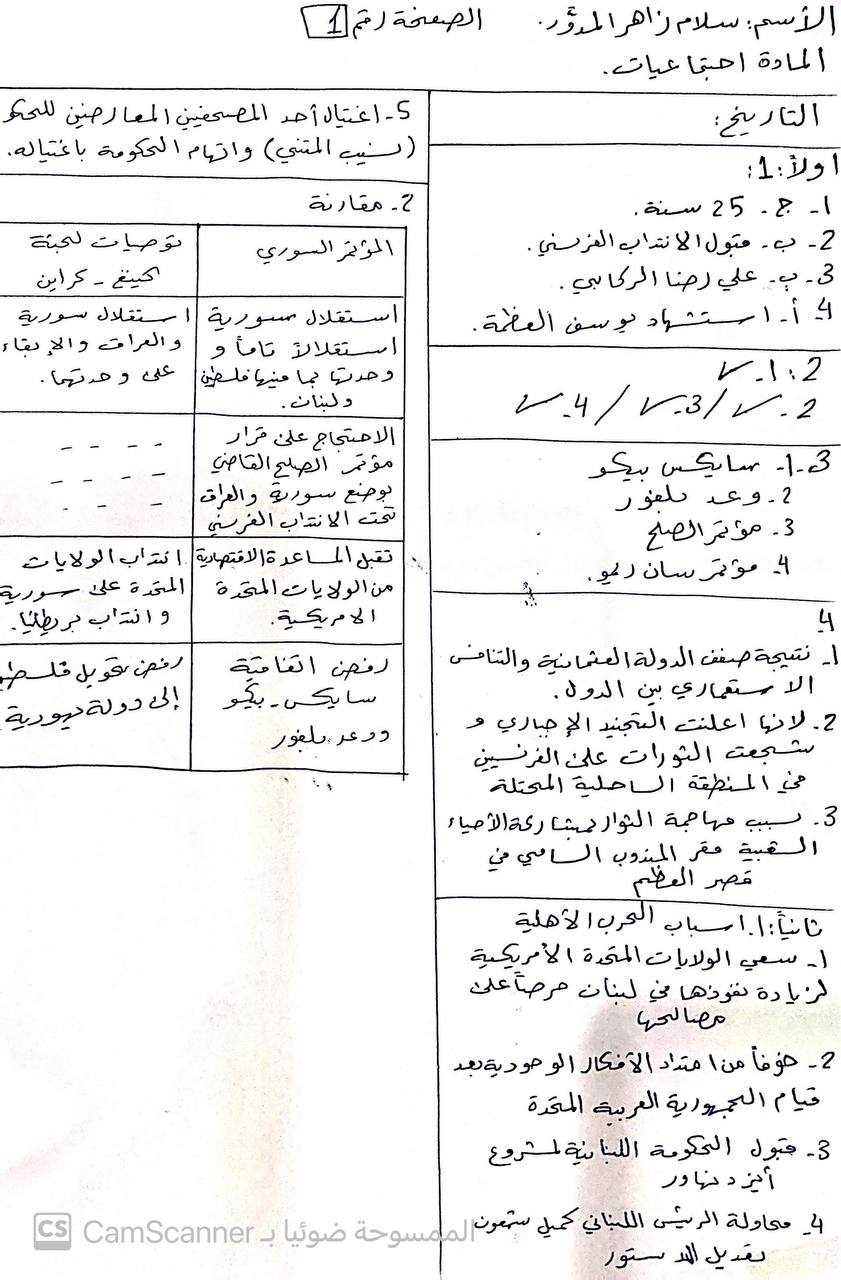 الأسم: سلام زاهر المدوَّر. الصفحة رقم 1
المادة احتماعيات.
التاريخ:
اولاً: 1:
1- ج- 25 سنة.
2- ب- قبول الانتداب الفرنسي.
3- ب- علي رضا الركابي.
4 أ- استشهاد يوسف العظمة.
2: 1- ✓
2- ✓ / 3- ✓ / 4- ✓
3-1- سايكس بيكو
2- وعد بلفور
3- مؤتمر الصلح
4- مؤتمر سان ريمو.
4
1- نتيجة ضعف الدولة العثمانية والتنافس
الاستعماري بين الدول.
2- لانها اعلنت التجنيد الإجباري و
شجعت الثورات على الفرنسيين
في المنطقة الساحلية المحتلة
3- بسبب مهاجمة الثوار بمشاركة الأحياء
الشعبية مقر المندوب السامي في
قصر العظم
ثانياً: 1. اسباب الحرب الأهلية
1- سعي الولايات المتحدة الأمريكية
لزيادة نفوذها في لبنان حرصاً على
مصالحها
2- خوفاً من امتداد الأفكار الوحودية بعد
قيام الجمهورية العربية المتحدة
3- قبول الحكومة اللبنانية لمشروع
أيزدنهاور
4- محاولة الرئيس اللبناني كميل شمعون
تعديل الدستور
5- اغتيال أحد الصحفيين المعارضين للحكو
(نسيب المتني) واتهام الحكومة باغتياله.
2- مقارنة
المؤتمر السوري توصيات لجنة
كينغ - كراين
استقلال سورية استقلال سورية
استقلالاً تاماً و والعراق والإبقاء
وحدتها بما فيها فلسطين على وحدتهما.
ولبنان.
الاحتجاج على قرار - - - -
مؤتمر الصلح القاضي - - - -
بوضع سورية والعراق - - -
تحت الانتداب الفرنسي
تقبل المساعدة الاقتصادية انتداب الولايات
من الولايات المتحدة المتحدة على سورية
الامريكية. وانتداب بريطانيا.
رفض اتفاقية رفض تحويل فلسط
سايكس - بيكو إلى دولة يهودية
ووعد بلفور
الممسوحة ضوئيا بـ CamScanner
CS